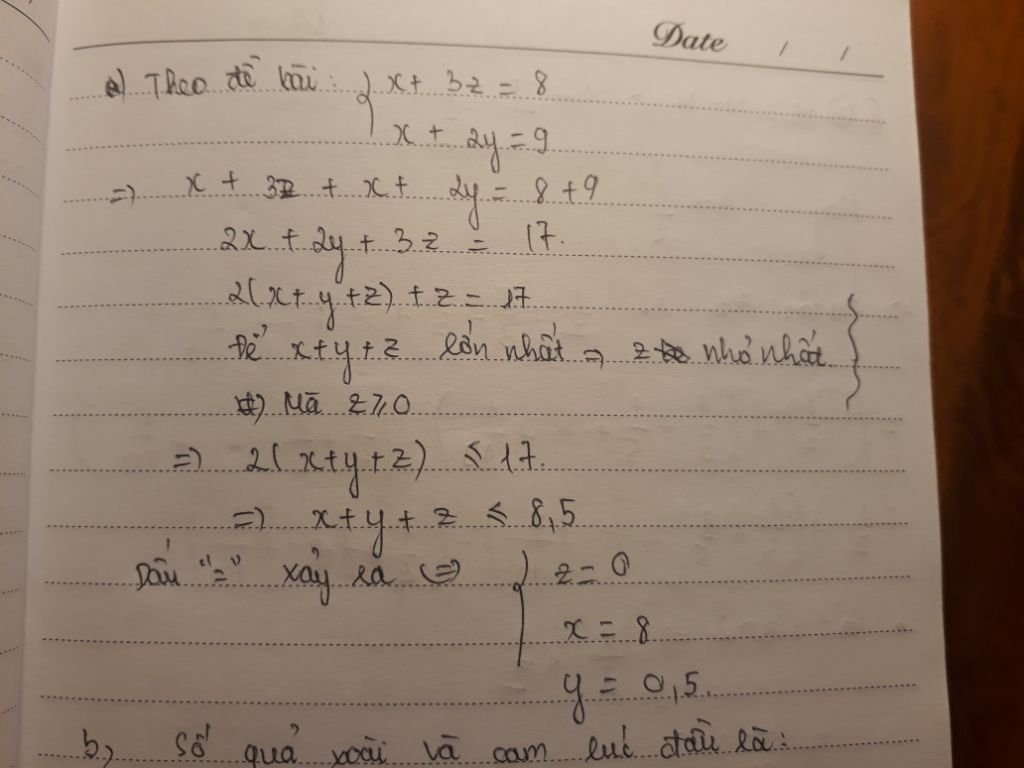 Date / /
a) Theo đề bài: { x + 3z = 8
x + 2y = 9
=) x + 3z + x + 2y = 8 + 9
2x + 2y + 3z = 17.
2(x + y + z) + z = 17
Để x+y+z lớn nhất => z nhỏ nhất
Mà z ≥ 0
=) 2(x+y+z) ≤ 17.
=) x+y+z ≤ 8,5
Dấu "=" xảy ra (=) { z = 0
x = 8
y = 0,5.
b, Số quả xoài và cam lúc đầu là: